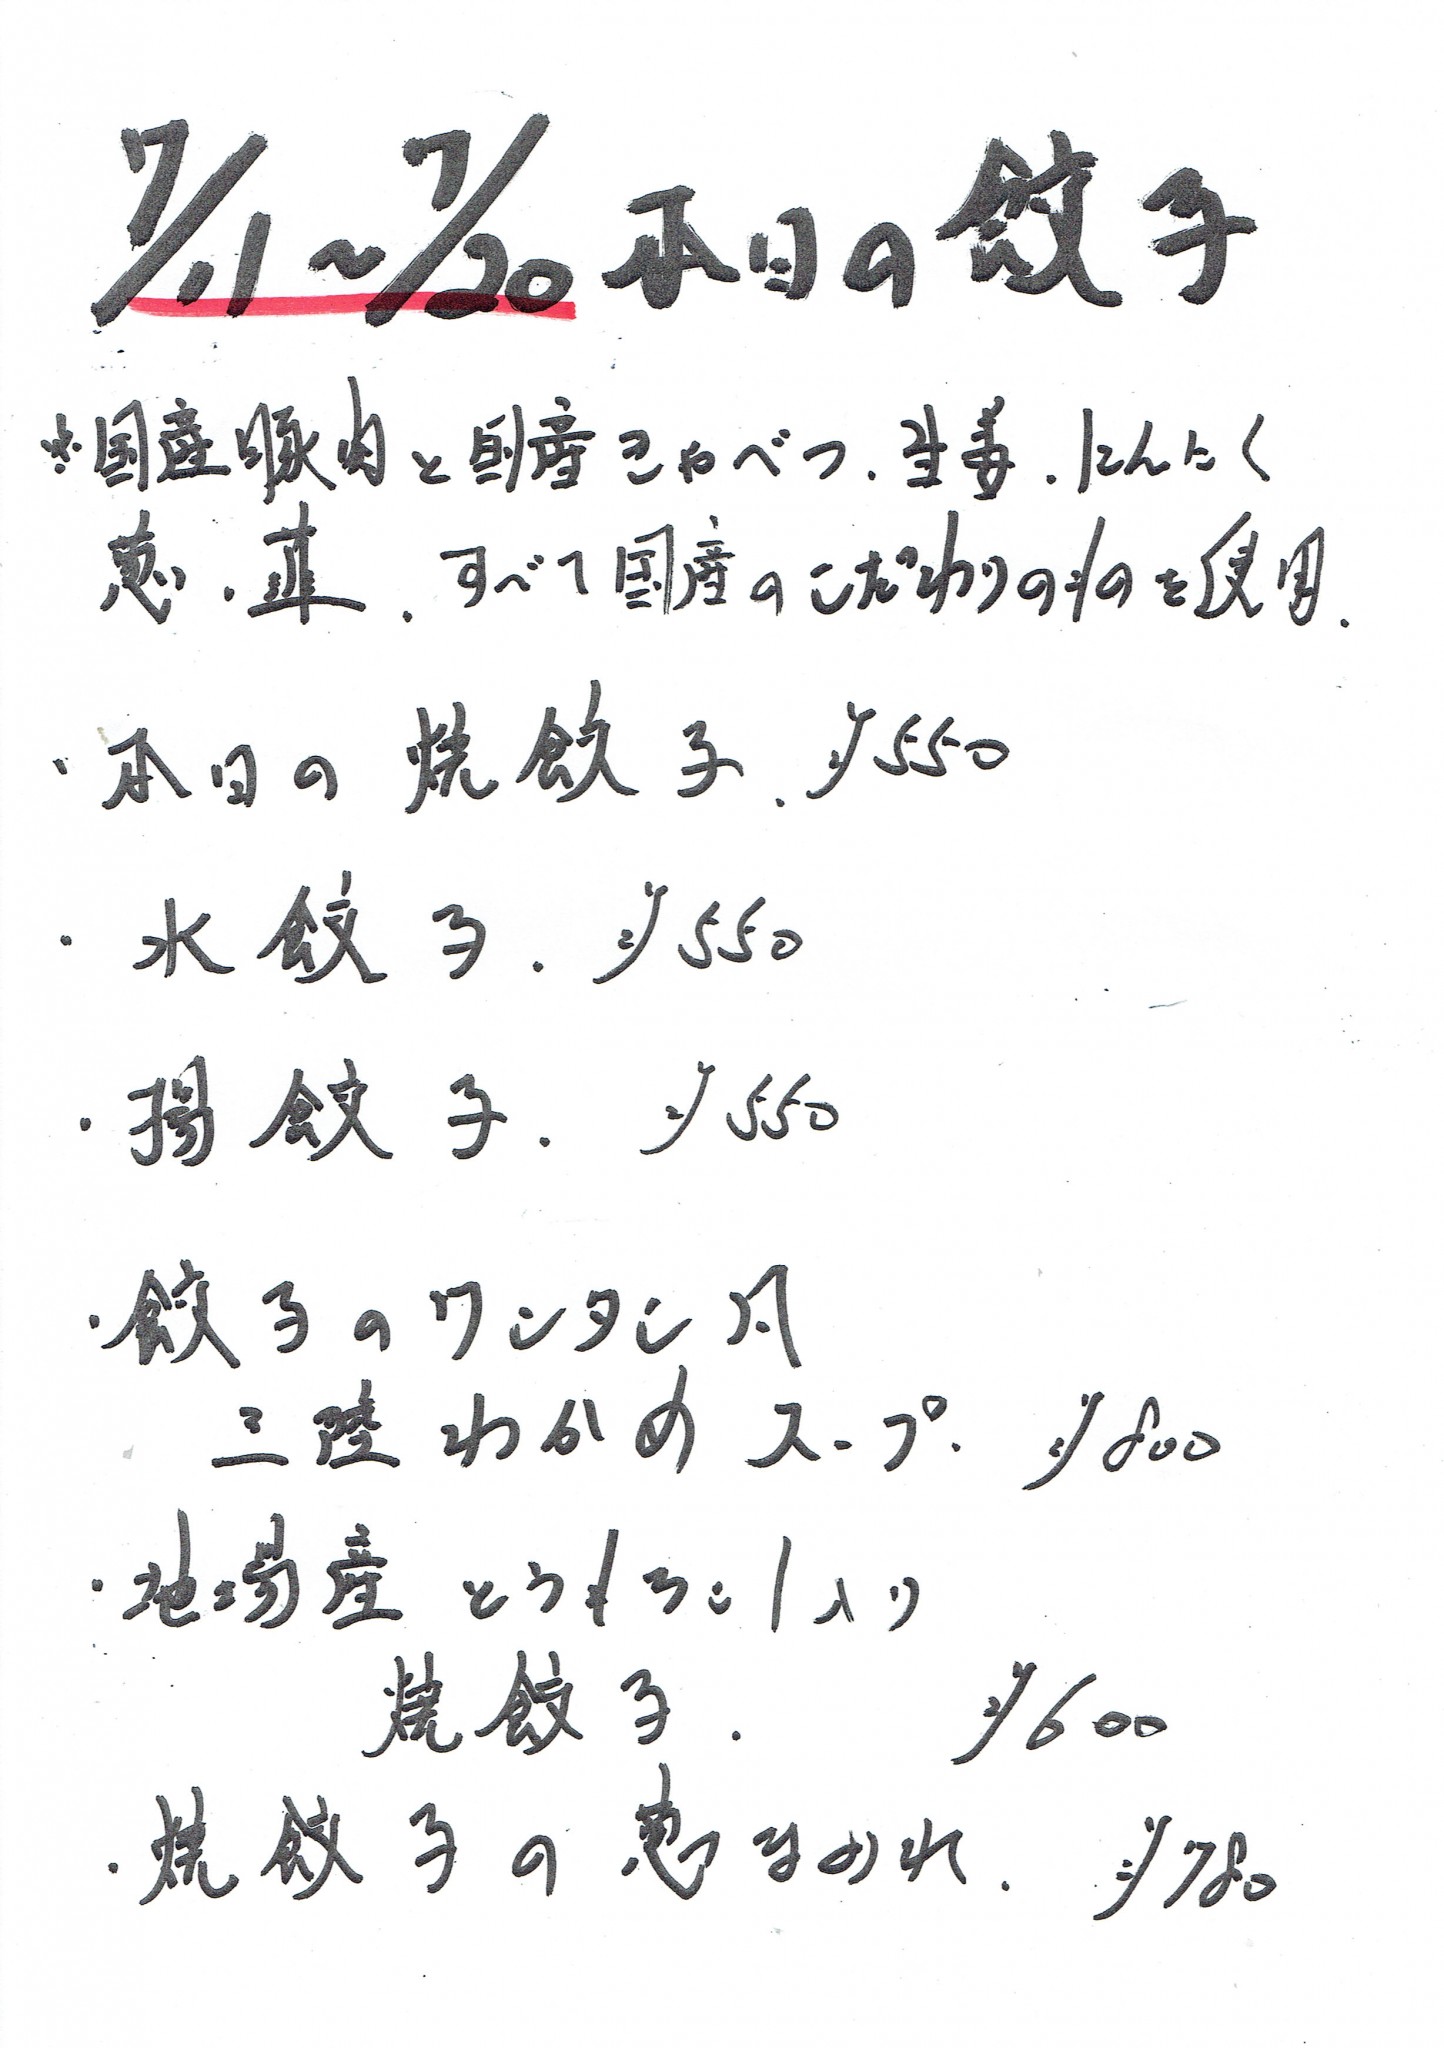 7/11~7/20 本日の餃子
※国産豚肉と国産きゃべつ.生姜.にんにく
葱.韮.すべて国産のこだわりのものを使用.
・本日の焼餃子. ¥550
・水餃子. ¥550
・揚餃子. ¥550
・餃子のワンタン風
三陸わかめスープ. ¥800
・地場産とうもろこし入り
焼餃子. ¥600
・焼餃子の葱まみれ. ¥780